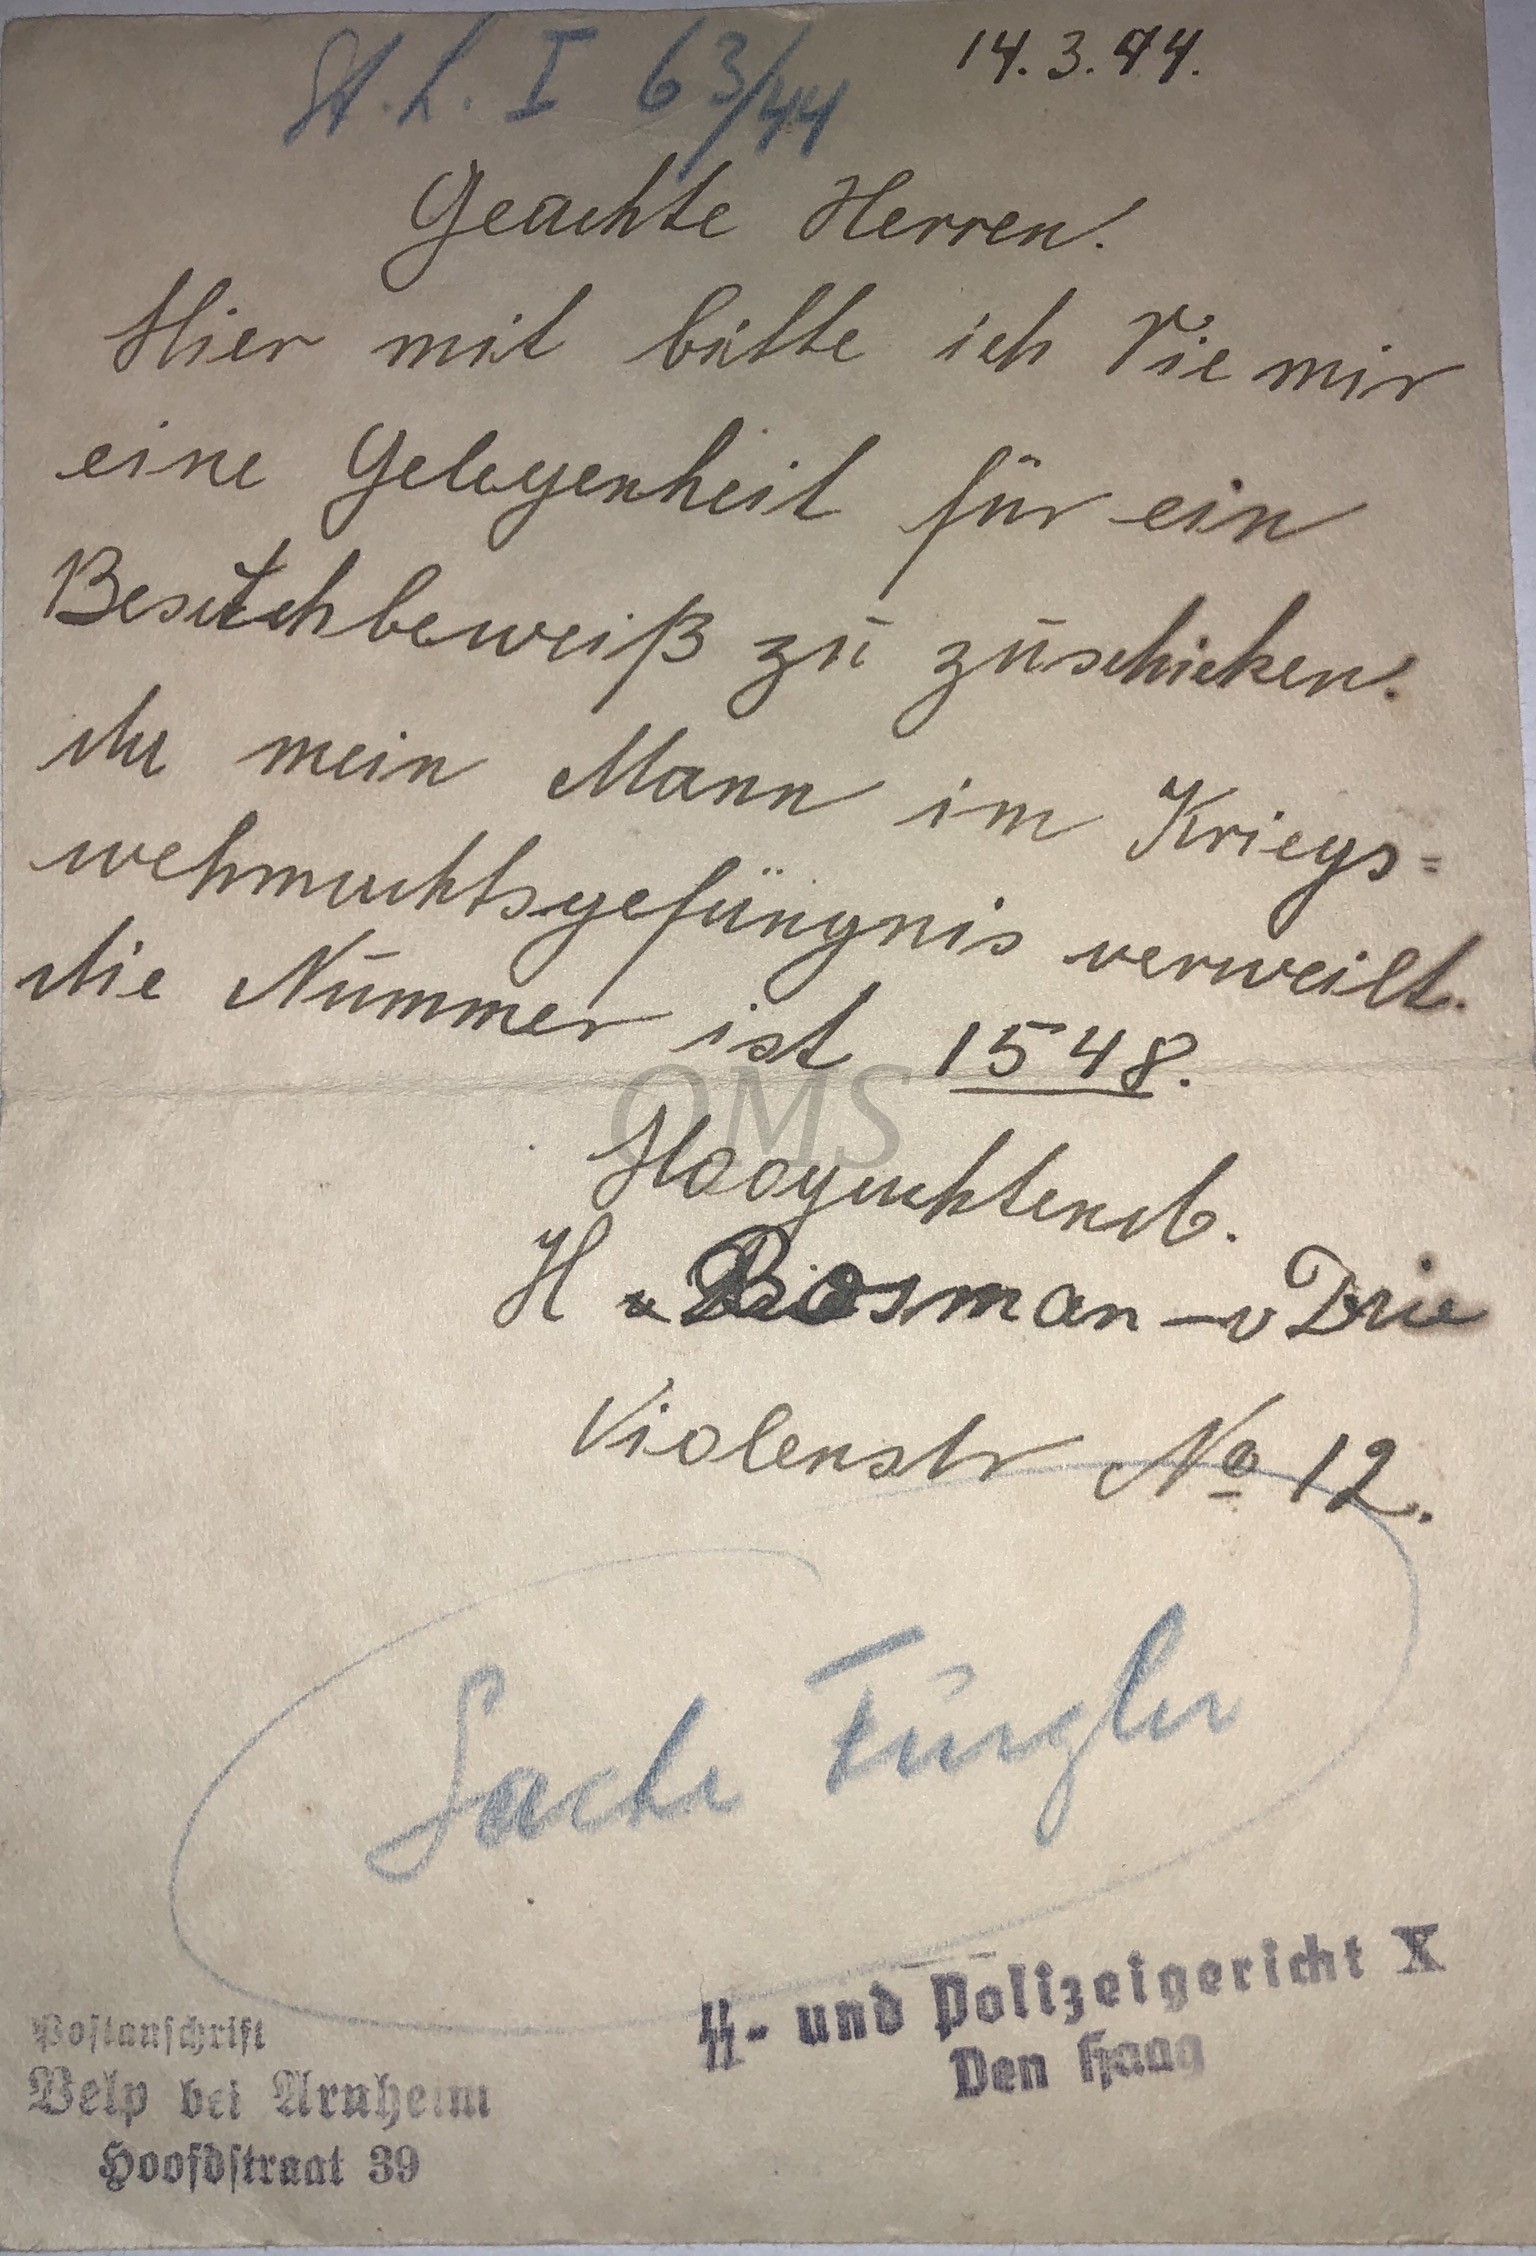 St. L. I 63/44
14.3.44.
Geachte Herren.
Hier mit bitte ich Sie mir
eine Gelegenheit für ein
Besuchbeweiß zu zuschicken.
da mein Mann im Kriegs=
wehrmachtsgefängnis verweilt.
die Nummer ist 1548.
OMS
Hoogachtend.
H Bosman - v Drie
Violenstr No 12.
Sache Fürgler
SS- und Polizeigericht X
Den Haag
Postanschrift
Velp bei Arnheim
Hoofdstraat 39